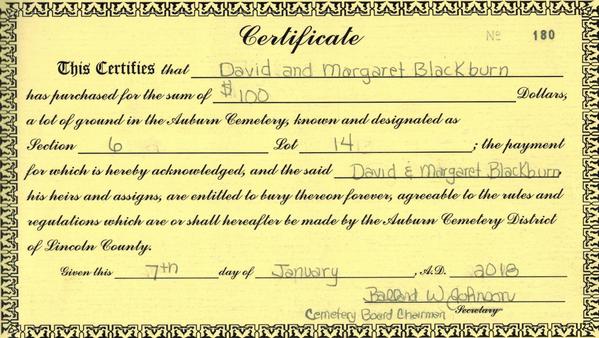 Certificate
No 180
This Certifies that David and Margaret Blackburn
has purchased for the sum of $100 Dollars,
a lot of ground in the Auburn Cemetery, known and designated as
Section 6 Lot 14 ; the payment
for which is hereby acknowledged, and the said David & Margaret Blackburn,
his heirs and assigns, are entitled to bury thereon forever, agreeable to the rules and
regulations which are or shall hereafter be made by the Auburn Cemetery District
of Lincoln County.
Given this 7th day of January, A.D. 2018
Ballard W Johnson
Cemetery Board Chairman Secretary